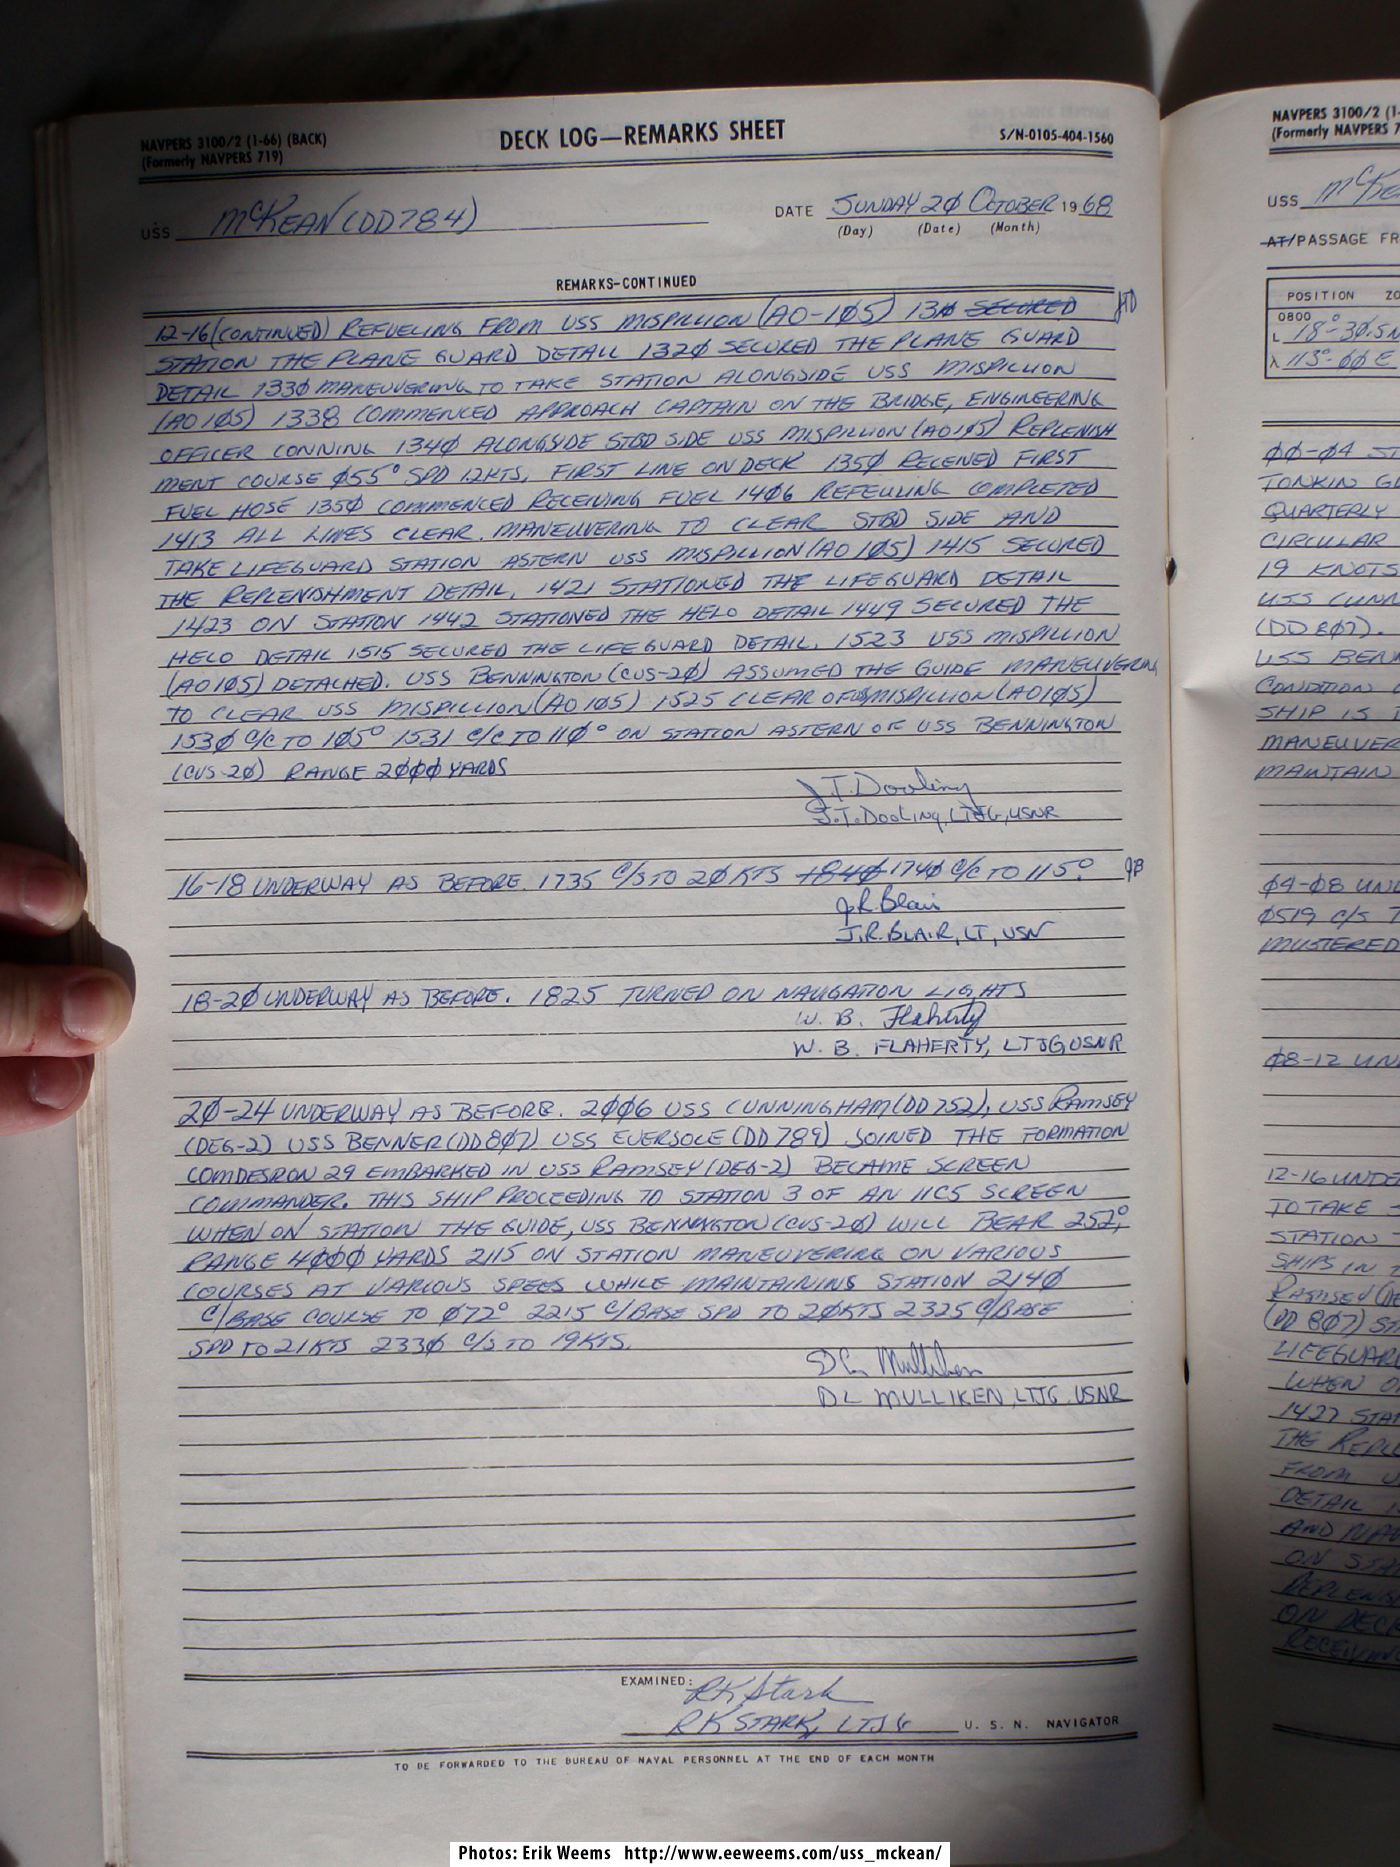 NAVPERS 3100/2 (1-66) (BACK)
(Formerly NAVPERS 719)
DECK LOG—REMARKS SHEET
S/N-0105-404-1560
USS McKEAN (DD784)
DATE SUNDAY 20 OCTOBER 1968
(Day) (Date) (Month)
REMARKS-CONTINUED
12-16 (CONTINUED) REFUELING FROM USS MISPILLION (AO-105) SECURED JTD
STATION THE PLANE GUARD DETAIL 1320 SECURED THE PLANE GUARD
DETAIL 1330 MANEUVERING TO TAKE STATION ALONGSIDE USS MISPILLION
(AO105) 1338 COMMENCED APPROACH CAPTAIN ON THE BRIDGE, ENGINEERING
OFFICER CONNING 1340 ALONGSIDE STBD SIDE USS MISPILLION (AO105) REPLENISH
MENT COURSE 055° SPD 12KTS, FIRST LINE ON DECK 1350 RECEIVED FIRST
FUEL HOSE 1350 COMMENCED RECEIVING FUEL 1406 REFEULING COMPLETED
1413 ALL LINES CLEAR. MANEUVERING TO CLEAR STBD SIDE AND
TAKE LIFEGUARD STATION ASTERN USS MISPILLION (AO 105) 1415 SECURED
THE REPLENISHMENT DETAIL, 1421 STATIONED THE LIFEGUARD DETAIL
1423 ON STATION 1442 STATIONED THE HELO DETAIL 1449 SECURED THE
HELO DETAIL 1515 SECURED THE LIFEGUARD DETAIL, 1523 USS MISPILLION
(AO105) DETACHED. USS BENNINGTON (CVS-20) ASSUMED THE GUIDE MANEUVERING
TO CLEAR USS MISPILLION (AO 105) 1525 CLEAR OF USS MISPILLION (AO105)
1530 C/C TO 105° 1531 C/C TO 110° ON STATION ASTERN OF USS BENNINGTON
(CVS-20) RANGE 2000 YARDS
J.T. Dooling
J.T. Dooling, LTJG, USNR
16-18 UNDERWAY AS BEFORE. 1735 C/S TO 20 KTS 1840 1740 C/C TO 115° JB
J.R. Blair
J.R. BLAIR, LT, USN
18-20 UNDERWAY AS BEFORE. 1825 TURNED ON NAVIGATION LIGHTS
W. B. Flaherty
W. B. FLAHERTY, LTJG USNR
20-24 UNDERWAY AS BEFORE. 2006 USS CUNNINGHAM (DD752), USS RAMSEY
(DEG-2) USS BENNER (DD807) USS EVERSOLE (DD 789) JOINED THE FORMATION
COMDESRON 29 EMBARKED IN USS RAMSEY (DEG-2) BECAME SCREEN
COMMANDER. THIS SHIP PROCEEDING TO STATION 3 OF AN 11C5 SCREEN
WHEN ON STATION THE GUIDE, USS BENNINGTON (CVS-20) WILL BEAR 252°,
RANGE 4000 YARDS 2115 ON STATION MANEUVERING ON VARIOUS
COURSES AT VARIOUS SPEES WHILE MAINTAINING STATION 2140
C/BASE COURSE TO 072° 2215 C/BASE SPD TO 20KTS 2325 C/BASE
SPD TO 21KTS 2330 C/S TO 19KTS.
D L Mulliken
DL MULLIKEN, LTJG, USNR
EXAMINED:
RK Stark
RK STARK, LTJG U. S. N. NAVIGATOR
TO BE FORWARDED TO THE BUREAU OF NAVAL PERSONNEL AT THE END OF EACH MONTH
NAVPERS 3100/2 (1-
(Formerly NAVPERS 7
USS McKE
AT/PASSAGE FR
POSITION ZO
0800
L 18°-30.5N
λ 113°-00 E
00-04 ST
TONKIN GU
QUARTERLY
CIRCULAR
19 KNOTS
USS CUNN
(DD 807).
USS BENN
CONDITION
SHIP IS
MANEUVER
MAINTAIN
04-08 UND
0519 C/S T
MUSTERED
08-12 UN
12-16 UNDE
TO TAKE
STATION
SHIPS IN
RAMSEY (DE
(DD 807) STA
LIFEGUARD
WHEN O
1427 STA
THE REPLE
FROM U
DETAIL
AND MAN
ON STA
REPLENI
ON DECK
RECEIVING
Photos: Erik Weems http://www.eeweems.com/uss_mckean/